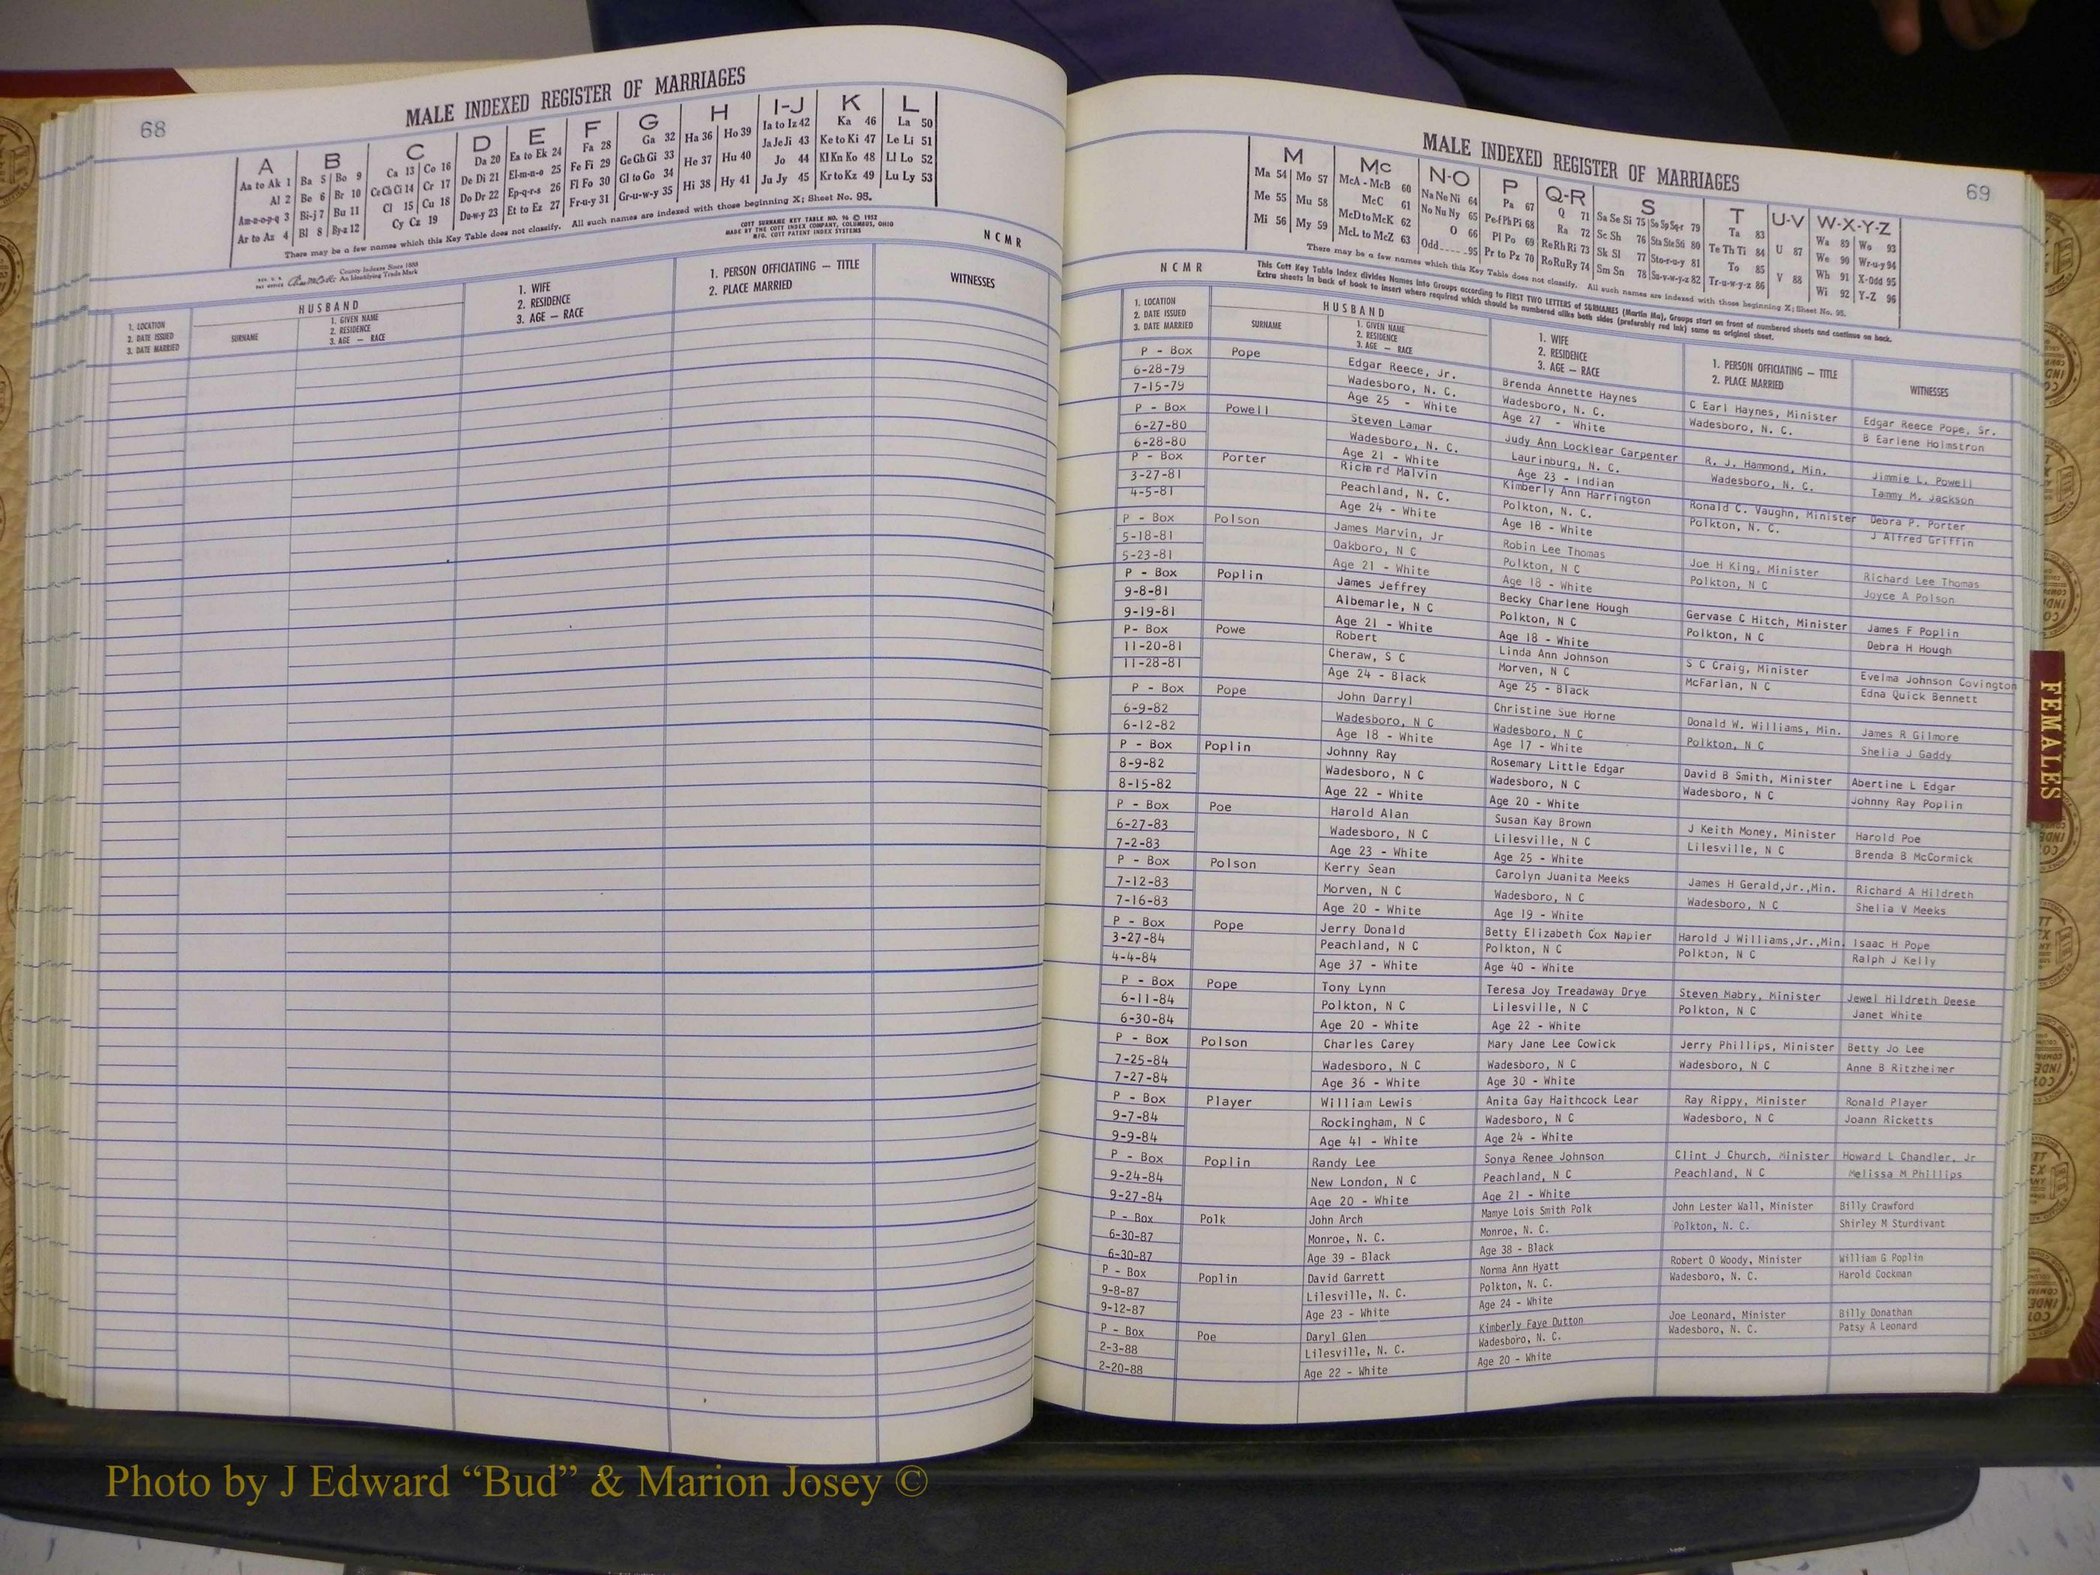 68
MALE INDEXED REGISTER OF MARRIAGES
A B C D E F G H I-J K L
Aa to Ak 1 Ba 5 Bo 9 Ca 13 Co 16 Da 20 Ea to Ek 24 Fa 28 Ga 32 Ha 36 Ho 39 Ia to Iz 42 Ka 46 La 50
Al 2 Be 6 Br 10 Ce Ch Ci 14 Cr 17 De Di 21 El-m-n-o 25 Fe Fi 29 Ge Gh Gi 33 He 37 Hu 40 Ja Je Ji 43 Ke to Ki 47 Le Li 51
Am-n-o-p-q 3 Bi-j 7 Bu 11 Cl 15 Cu 18 Do Dr 22 Ep-q-r-s 26 Fl Fo 30 Gl to Go 34 Hi 38 Hy 41 Jo 44 Kl Kn Ko 48 Ll Lo 52
Ar to Az 4 Bl 8 By-z 12 Cy Cz 19 Du-w-y 23 Et to Ez 27 Fr-u-y 31 Gr-u-w-y 35 Ju Jy 45 Kr to Kz 49 Lu Ly 53
There may be a few names which this Key Table does not classify. All such names are indexed with those beginning X; Sheet No. 95.
COTT SURNAME KEY TABLE NO. 96 © 1952
MADE BY THE COTT INDEX COMPANY, COLUMBUS, OHIO
MFG. COTT PATENT INDEX SYSTEMS
County Indexes Since 1888
An Identifying Trade Mark
N C M R
1. LOCATION
2. DATE ISSUED
3. DATE MARRIED
HUSBAND
SURNAME
1. GIVEN NAME
2. RESIDENCE
3. AGE — RACE
1. WIFE
2. RESIDENCE
3. AGE — RACE
1. PERSON OFFICIATING — TITLE
2. PLACE MARRIED
WITNESSES
MALE INDEXED REGISTER OF MARRIAGES
69
M Mc N-O P Q-R S T U-V W-X-Y-Z
Ma 54 Mo 57 McA - McB 60 Na Ne Ni 64 Pa 67 Q 71 Sa Se Si 75 So Sp Sq-r 79 Ta 83 U 87 Wa 89 Wo 93
Me 55 Mu 58 McC 61 No Nu Ny 65 Pe-f Ph Pi 68 Ra 72 Sc Sh 76 Sta Ste Sti 80 Te Th Ti 84 V 88 We 90 Wr-u-y 94
Mi 56 My 59 McD to McK 62 O 66 Pl Po 69 Re Rh Ri 73 Sk Sl 77 Sto-r-u-y 81 To 85 Wh 91 X-Odd 95
McL to McZ 63 Odd 95 Pr to Pz 70 Ro Ru Ry 74 Sm Sn 78 Su-v-w-y-z 82 Tr-u-w-y-z 86 Wi 92 Y-Z 96
There may be a few names which this Key Table does not classify. All such names are indexed with those beginning X; Sheet No. 95.
N C M R
This Cott Key Table Index divides Names into Groups according to FIRST TWO LETTERS of SURNAMES (Martin Ma), Groups start on front of numbered sheets and continue on back.
Extra sheets in back of book to insert where required which should be numbered alike both sides (preferably red ink) same as original sheet.
1. LOCATION
2. DATE ISSUED
3. DATE MARRIED
HUSBAND
SURNAME
1. GIVEN NAME
2. RESIDENCE
3. AGE — RACE
1. WIFE
2. RESIDENCE
3. AGE — RACE
1. PERSON OFFICIATING — TITLE
2. PLACE MARRIED
WITNESSES
P - Box Pope Edgar Reece, Jr. Brenda Annette Haynes C Earl Haynes, Minister Edgar Reece Pope, Sr.
6-28-79 Wadesboro, N. C. Wadesboro, N. C. Wadesboro, N. C. B Earlene Holmstron
7-15-79 Age 25 - White Age 27 - White
P - Box Powell Steven Lamar Judy Ann Locklear Carpenter R. J. Hammond, Min. Jimmie L. Powell
6-27-80 Wadesboro, N. C. Laurinburg, N. C. Wadesboro, N. C. Tammy M. Jackson
6-28-80 Age 21 - White Age 23 - Indian
P - Box Porter Richard Malvin Kimberly Ann Harrington Ronald C. Vaughn, Minister Debra P. Porter
3-27-81 Peachland, N. C. Polkton, N. C. Polkton, N. C. J Alfred Griffin
4-5-81 Age 24 - White Age 18 - White
P - Box Polson James Marvin, Jr Robin Lee Thomas Joe H King, Minister Richard Lee Thomas
5-18-81 Oakboro, N C Polkton, N C Polkton, N C Joyce A Polson
5-23-81 Age 21 - White Age 18 - White
P - Box Poplin James Jeffrey Becky Charlene Hough Gervase C Hitch, Minister James F Poplin
9-8-81 Albemarle, N C Polkton, N C Polkton, N C Debra H Hough
9-19-81 Age 21 - White Age 18 - White
P- Box Powe Robert Linda Ann Johnson S C Craig, Minister Evelma Johnson Covington
11-20-81 Cheraw, S C Morven, N C McFarlan, N C Edna Quick Bennett
11-28-81 Age 24 - Black Age 25 - Black
P - Box Pope John Darryl Christine Sue Horne Donald W. Williams, Min. James R Gilmore
6-9-82 Wadesboro, N C Wadesboro, N C Polkton, N C Shelia J Gaddy
6-12-82 Age 18 - White Age 17 - White
P - Box Poplin Johnny Ray Rosemary Little Edgar David B Smith, Minister Abertine L Edgar
8-9-82 Wadesboro, N C Wadesboro, N C Wadesboro, N C Johnny Ray Poplin
8-15-82 Age 22 - White Age 20 - White
P - Box Poe Harold Alan Susan Kay Brown J Keith Money, Minister Harold Poe
6-27-83 Wadesboro, N C Lilesville, N C Lilesville, N C Brenda B McCormick
7-2-83 Age 23 - White Age 25 - White
P - Box Polson Kerry Sean Carolyn Juanita Meeks James H Gerald,Jr.,Min. Richard A Hildreth
7-12-83 Morven, N C Wadesboro, N C Wadesboro, N C Shelia V Meeks
7-16-83 Age 20 - White Age 19 - White
P - Box Pope Jerry Donald Betty Elizabeth Cox Napier Harold J Williams,Jr.,Min. Isaac H Pope
3-27-84 Peachland, N C Polkton, N C Polkton, N C Ralph J Kelly
4-4-84 Age 37 - White Age 40 - White
P - Box Pope Tony Lynn Teresa Joy Treadaway Drye Steven Mabry, Minister Jewel Hildreth Deese
6-11-84 Polkton, N C Lilesville, N C Polkton, N C Janet White
6-30-84 Age 20 - White Age 22 - White
P - Box Polson Charles Carey Mary Jane Lee Cowick Jerry Phillips, Minister Betty Jo Lee
7-25-84 Wadesboro, N C Wadesboro, N C Wadesboro, N C Anne B Ritzheimer
7-27-84 Age 36 - White Age 30 - White
P - Box Player William Lewis Anita Gay Haithcock Lear Ray Rippy, Minister Ronald Player
9-7-84 Rockingham, N C Wadesboro, N C Wadesboro, N C Joann Ricketts
9-9-84 Age 41 - White Age 24 - White
P - Box Poplin Randy Lee Sonya Renee Johnson Clint J Church, Minister Howard L Chandler, Jr
9-24-84 New London, N C Peachland, N C Peachland, N C Melissa M Phillips
9-27-84 Age 20 - White Age 21 - White
P - Box Polk John Arch Mamye Lois Smith Polk John Lester Wall, Minister Billy Crawford
6-30-87 Monroe, N. C. Monroe, N. C. Polkton, N. C. Shirley M Sturdivant
6-30-87 Age 39 - Black Age 38 - Black
P - Box Poplin David Garrett Norma Ann Hyatt Robert O Woody, Minister William G Poplin
9-8-87 Lilesville, N. C. Polkton, N. C. Wadesboro, N. C. Harold Cockman
9-12-87 Age 23 - White Age 24 - White
P - Box Poe Daryl Glen Kimberly Faye Dutton Joe Leonard, Minister Billy Donathan
2-3-88 Lilesville, N. C. Wadesboro, N. C. Wadesboro, N. C. Patsy A Leonard
2-20-88 Age 22 - White Age 20 - White
FEMALES
Photo by J Edward “Bud” & Marion Josey ©